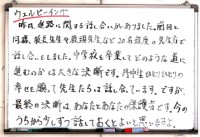 ウェルビーイング
昨日、進路に関する話し合いがありました。前日と
同様、校長先生や教頭先生など20名程度の先生で
話し合いをしました。中学校を卒業してどのような道に
進むのかは大きな決断です。丹中生ひとりひとりの
幸せを願って先生たちは話し合っています。ですが、
最終の決断は、あなたとあなたの保護者です。今の
うちから少しずつ話しておくとよいと思いますよ。